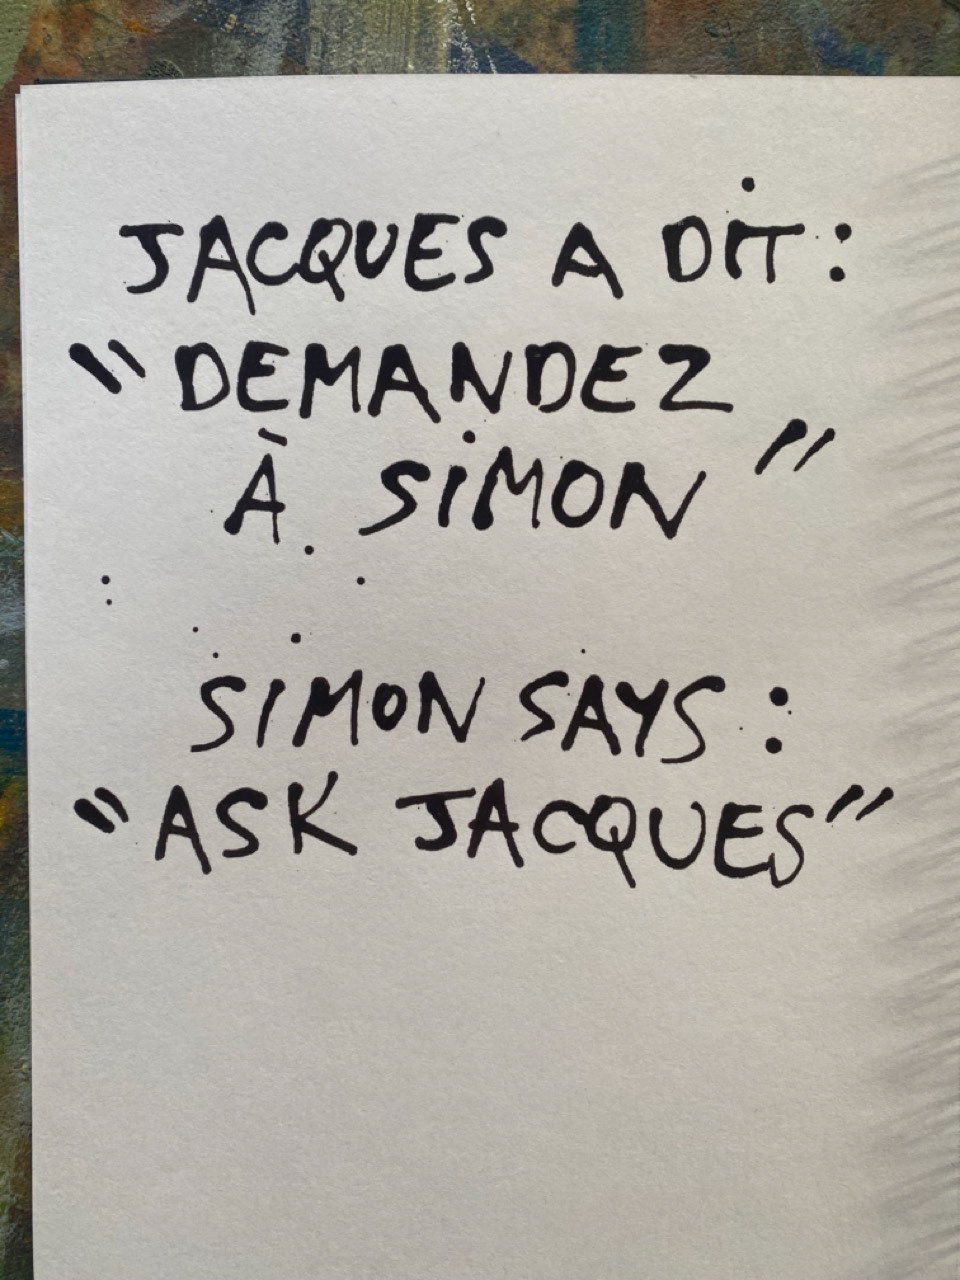 JACQUES A DiT :
“DEMANDEZ
À SiMON”
SIMON SAYS :
“ASK JACQUES”